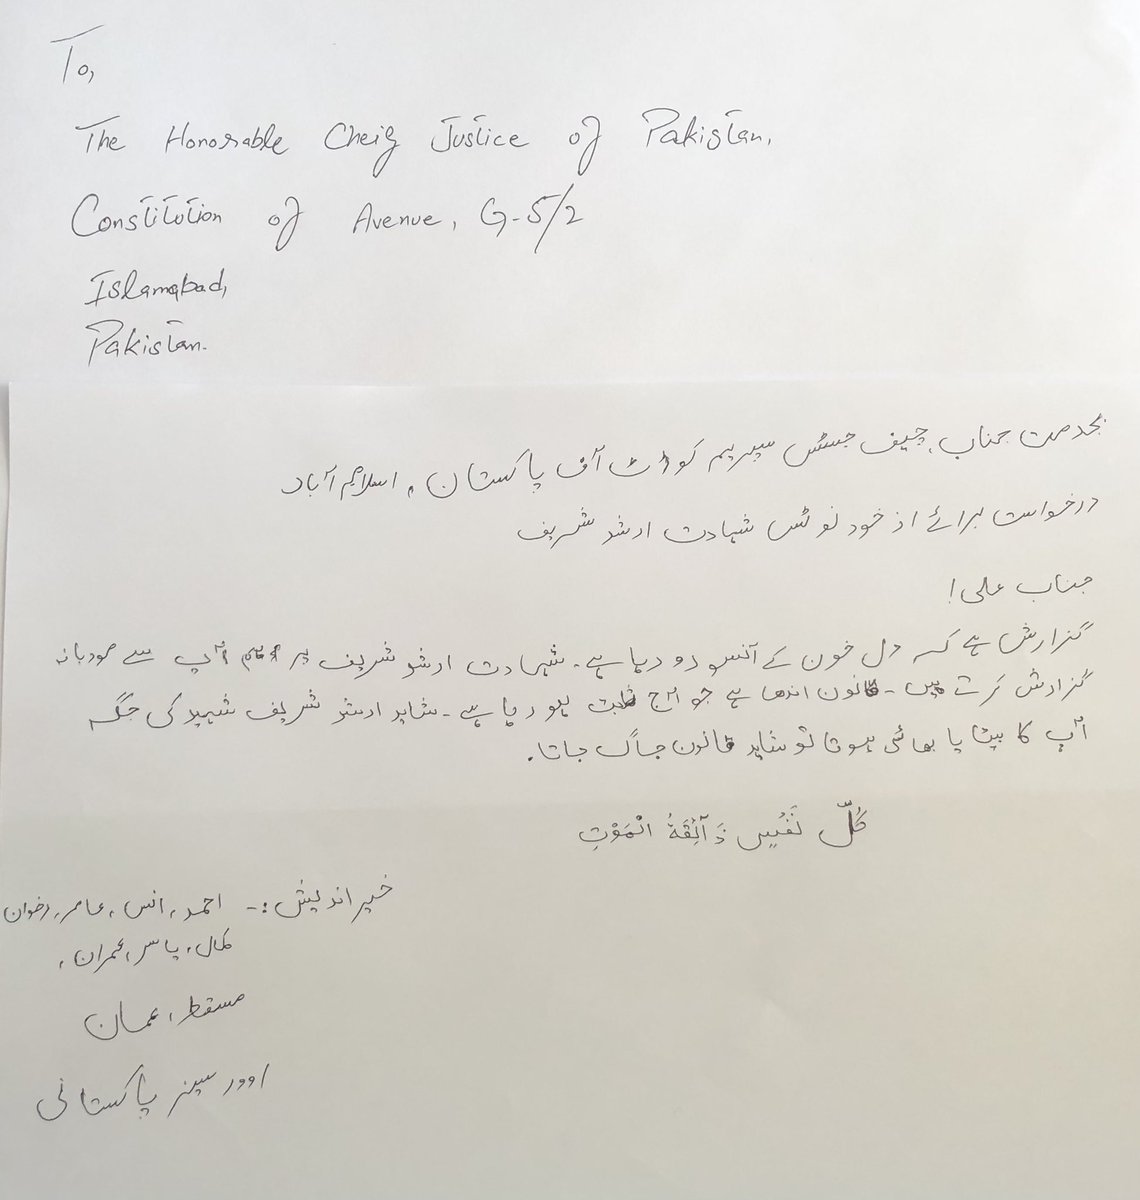 To,
The Honorable Cheif Justice of Pakistan,
Constitution of Avenue, G-5/2
Islamabad,
Pakistan.
بخدمت جناب چیف جسٹس سپریم کورٹ آف پاکستان، اسلام آباد
درخواست برائے از خود نوٹس شہادت ارشد شریف
جناب علی!
گزارش ہے کہ دل خون کے آنسو رو رہا ہے۔ شہادت ارشد شریف پر ہم آپ سے مودبانہ
گزارش کرتے ہیں۔ قانون اندھا ہے جو آج ثابت ہو رہا ہے۔ شاید ارشد شریف شہید کی جگہ
آپ کا بیٹا یا بھائی ہوتا تو شاید قانون جاگ جاتا.
كُلُّ نَفْسٍ ذَآئِقَةُ الْمَوْتِ
خیر اندیش :- احمد، انس، عامر، رضوان
کمال، یاسر، عمران،
مسقط، عمان
اوورسیز پاکستانی